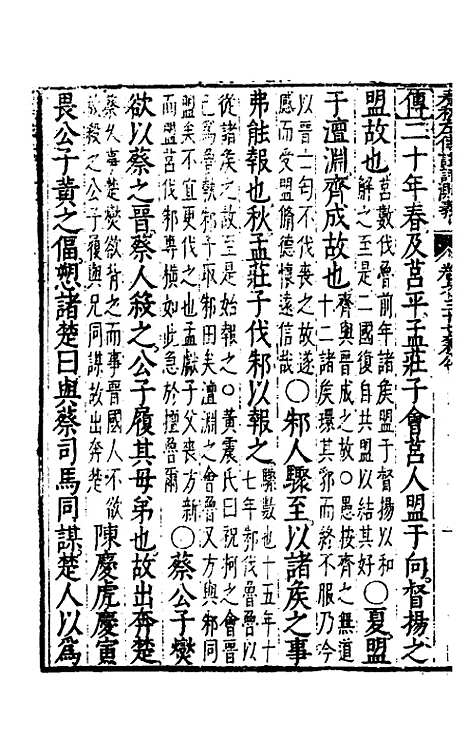 傳二十年春及莒平孟莊子會莒人盟于向督揚之
盟故也莒數伐魯前年諸矦盟督揚以和解之至是二國復自共盟以結其好○夏盟
于澶淵齊成故也齊與晉成之故○愚按齊之無道十二諸矦環其郛而終不服乃今
以晉士匄不伐喪之故遂感而受盟脩德懷遠信哉○邾人驟至以諸矦之事
弗能報也秋孟莊子伐邾以報之驟數也十五年十七年邾伐魯魯以
從諸矦之故始報之○黃震氏曰祝柯之會晉已爲魯執邾子取邾田矣澶淵之會魯又方與邾同
盟矣不宜邾田之孟獻子父喪方新而遽莒伐邾專橫如此急於擅魯爾○蔡公子燮
欲以蔡之晉蔡人殺之公子履其母弟也故出奔楚
蔡久事楚燮欲背之而事晉國人不欲故殺之公子履與兄同謀故出奔楚陳慶虎慶寅
畏公子黃之偪愬諸楚曰與蔡司馬同謀楚人以爲